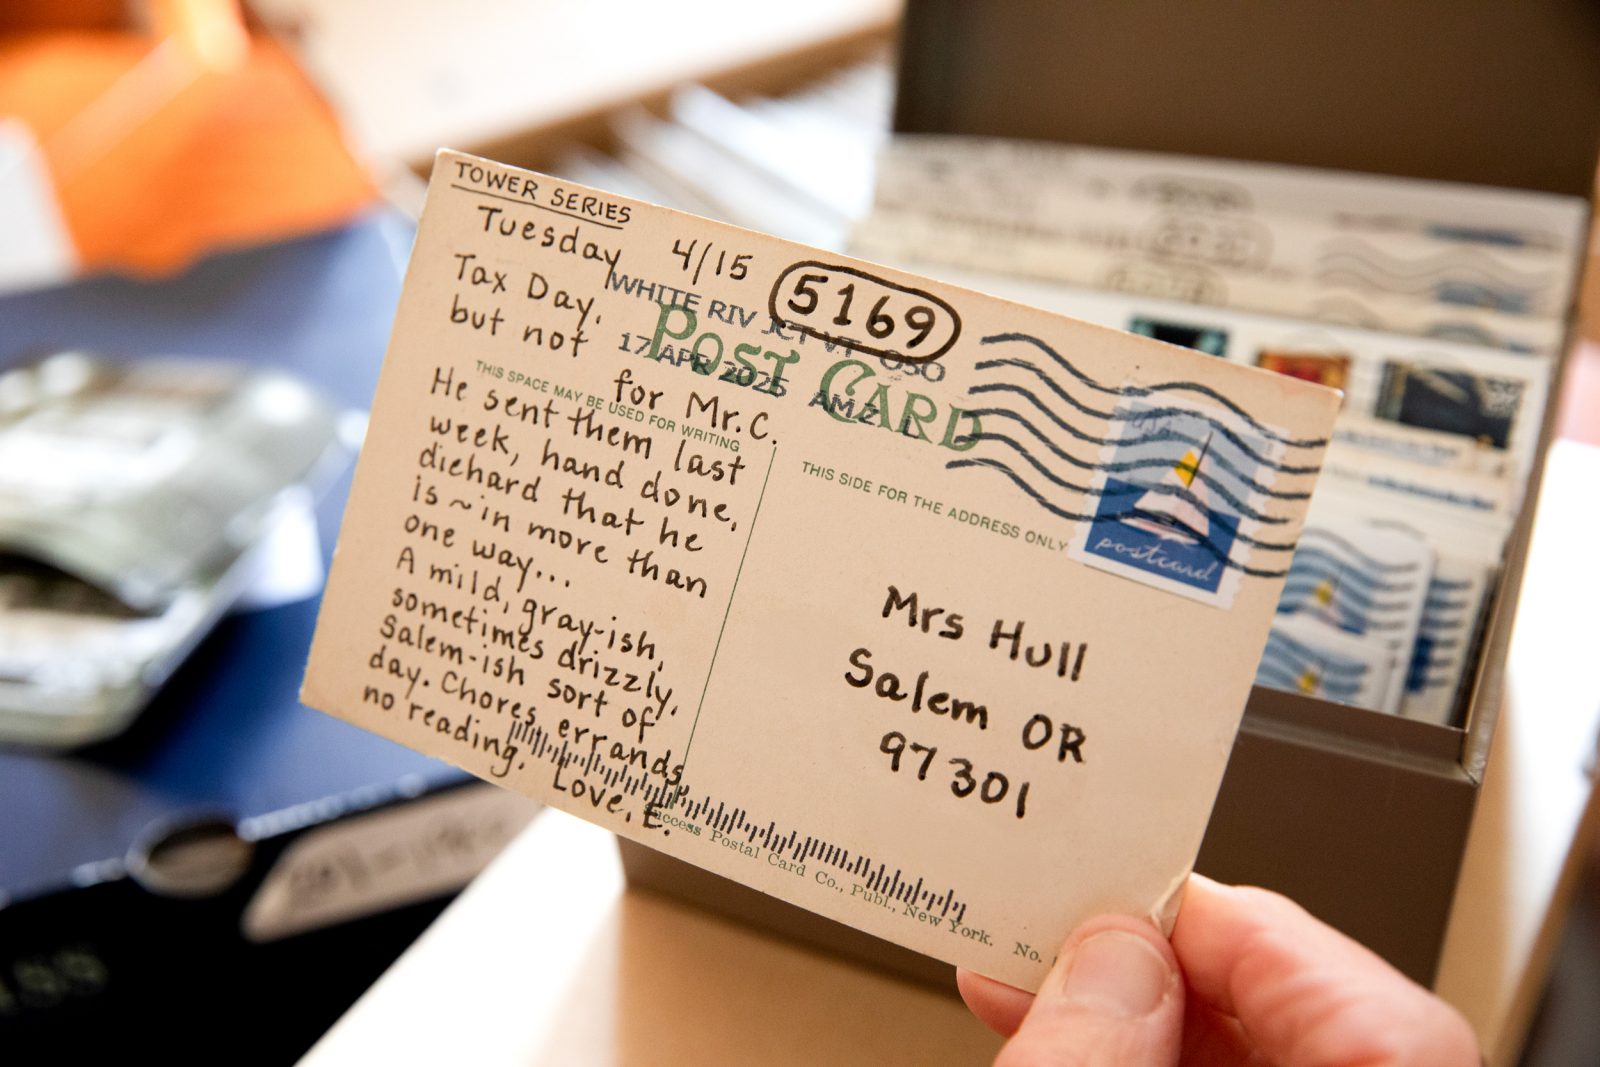 TOWER SERIES
Tuesday 4/15 5169
Tax Day,
but not
for Mr. C.
He sent them last
week, hand done,
diehard that he
is ~ in more than
one way...
A mild, gray-ish,
sometimes drizzly,
Salem-ish sort of
day. Chores, errands,
no reading.
Love, E.
WHITE RIV JCT VT 050
17 APR 2025 AM 2 L
POST CARD
THIS SPACE MAY BE USED FOR WRITING
THIS SIDE FOR THE ADDRESS ONLY
USA
postcard
Mrs Hull
Salem OR
97301
Success Postal Card Co., Publ., New York. No.